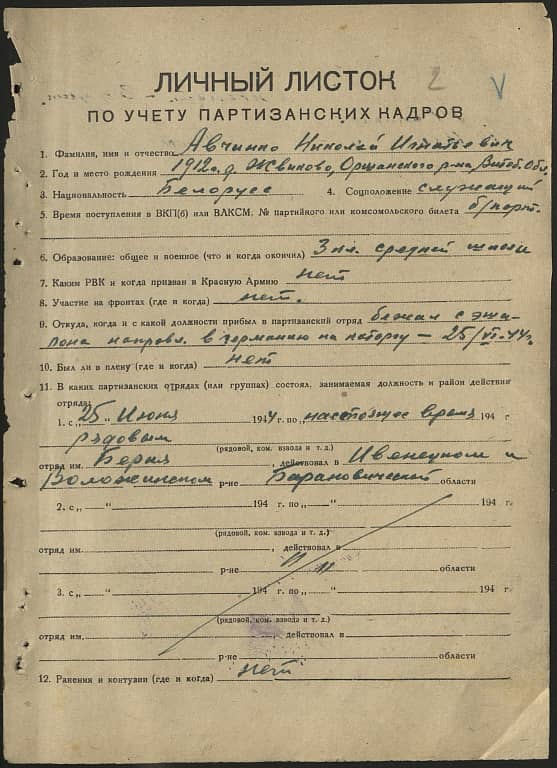 2 V
ЛИЧНЫЙ ЛИСТОК
ПО УЧЕТУ ПАРТИЗАНСКИХ КАДРОВ
1. Фамилия, имя и отчество Авчинко Николай Игнатьевич
2. Год и место рождения 1912 г. д. Жвиково, Оршанского р-на Витеб. Обл.
3. Национальность Белорусс 4. Соцположение служащий
5. Время поступления в ВКП(б) или ВЛКСМ, № партийного или комсомольского билета б/парт.
6. Образование: общее и военное (что и когда окончил) 3 кл. средней школы
7. Каким РВК и когда призван в Красную Армию нет
8. Участие на фронтах (где и когда) нет.
9. Откуда, когда и с какой должности прибыл в партизанский отряд бежал с эше-
лона направл. в германию на каторгу — 25/VI-44 г.
10. Был ли в плену (где и когда) нет
11. В каких партизанских отрядах (или группах) состоял, занимаемая должность и район действия
отряда:
1. с „25 Июня 1944 г. по „настоящее время 194 г
рядовым
(рядовой, ком. взвода и т. д.)
отряд им. Берия, действовал в Ивенецком и
Воложинском р-не Барановической области
2. с „ “ 194 г. по „ “ 194 г.
(рядовой, ком. взвода и т. д.)
отряд им. , действовал в
р-не области
3. с „ “ 194 г. по „ “ 194 г
(рядовой, ком. взвода и т. д.)
отряд им. действовал в
р-не области
12. Ранения и контузии (где и когда) нет